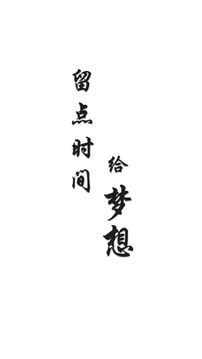 留点时间
给梦想